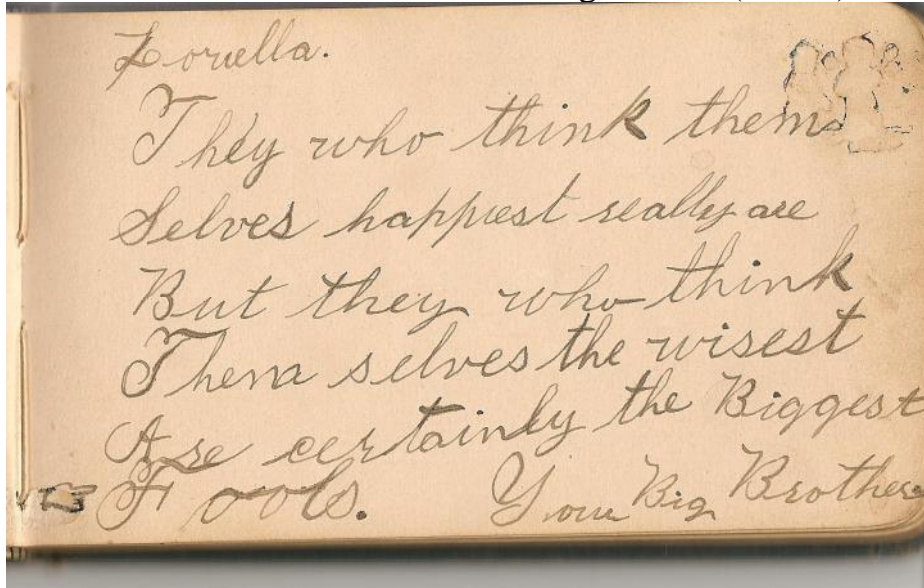 Louella.
They who think them
Selves happiest really are
But they who think
Them selves the wisest
Are certainly the Biggest
Fools. Your Big Brother